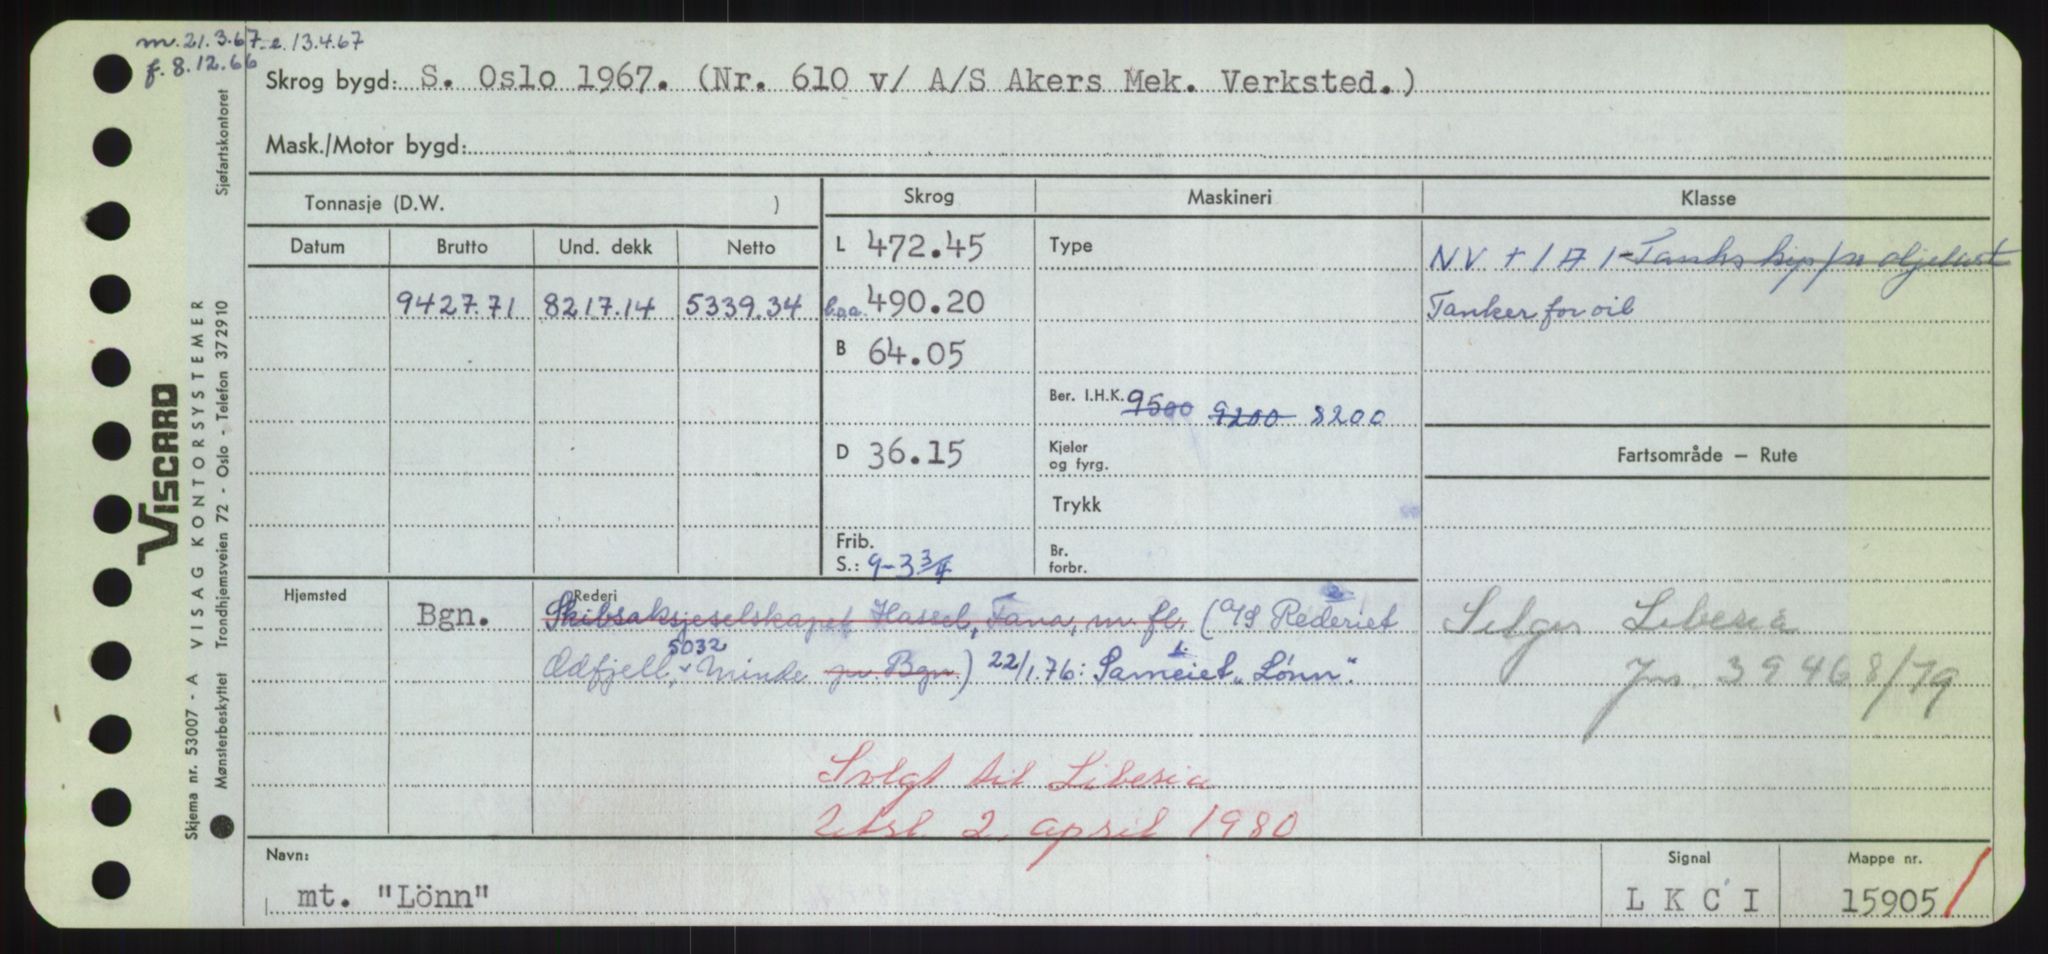 m. 21.3.67 - e. 13.4.67
f. 8.12.66
Skrog bygd: S. Oslo 1967. (Nr. 610 v/ A/S Akers Mek. Verksted.)
Mask./Motor bygd:
Tonnasje (D.W. )
Skrog
Maskineri
Klasse
Datum Brutto Und. dekk Netto
L 472.45
Type
NV + 1 A 1 - Tankskip f/n oljelast
9427.71 8217.14 5339.34
b.o.a. 490.20
Tanker for oil
B 64.05
Ber. I.H.K. 9500 9200 8200
D 36.15
Kjeler
og fyrg.
Fartsområde — Rute
Trykk
Frib.
S.: 9-3 3/4
Br.
forbr.
Hjemsted Bgn.
Rederi
Skibsaksjeselskapet Hassel, Tana, m. fl. (A/S Rederiet
Odfjell, 5032 Minde pr. Bgn.) 22/1.76: Sameiet "Lönn".
Selges Liberia
Jnr. 39468/79
Solgt til Liberia
Utsl 2. april 1980
Navn:
mt. "Lönn"
Signal
L K C I
Mappe nr.
15905
VISCARD
VISAG KONTORSYSTEMER
Skjema nr. 53007 - A
Mønsterbeskyttet Trondhjemsveien 72 - Oslo - Telefon 372910 Sjøfartskontoret